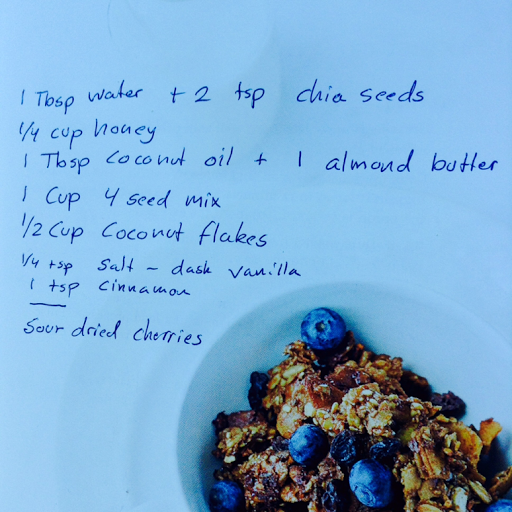 1 Tbsp water + 2 tsp chia seeds
1/4 cup honey
1 Tbsp coconut oil + 1 almond butter
1 Cup 4 seed mix
1/2 Cup Coconut flakes
1/4 tsp salt - dash vanilla
1 tsp cinnamon
Sour dried cherries